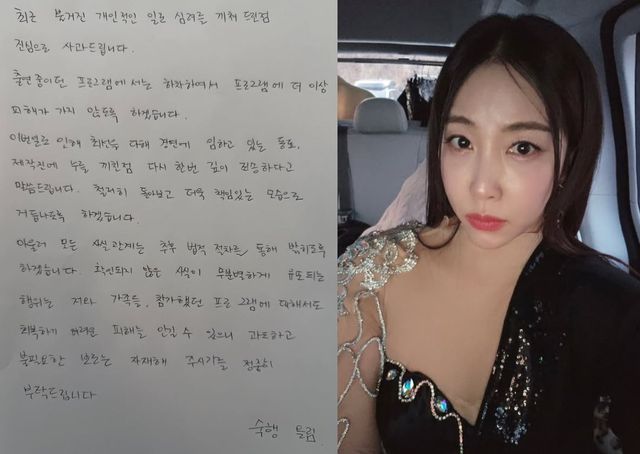 최근 불거진 개인적인 일로 심려를 끼쳐 드린점
진심으로 사과드립니다.
출연중이던 프로그램에서는 하차하여서 프로그램에 더 이상
피해가 가지 않도록 하겠습니다.
이번일로 인해 최선을 다해 경연에 임하고 있는 동료,
제작진에 누를 끼친점 다시 한번 깊이 죄송하다고
말씀드립니다. 철저히 돌아보고 더욱 책임있는 모습으로
거듭나도록 하겠습니다.
아울러 모든 사실관계는 추후 법적 절차를 통해 밝히도록
하겠습니다. 확인되지 않은 사실이 무분별하게 유포되는
행위는 저와 가족들, 참가했던 프로그램에 대해서도
회복하기 어려운 피해를 안길 수 있으니 과도하고
불필요한 보도는 자재해 주시기를 정중히
부탁드립니다
숙행 드림.